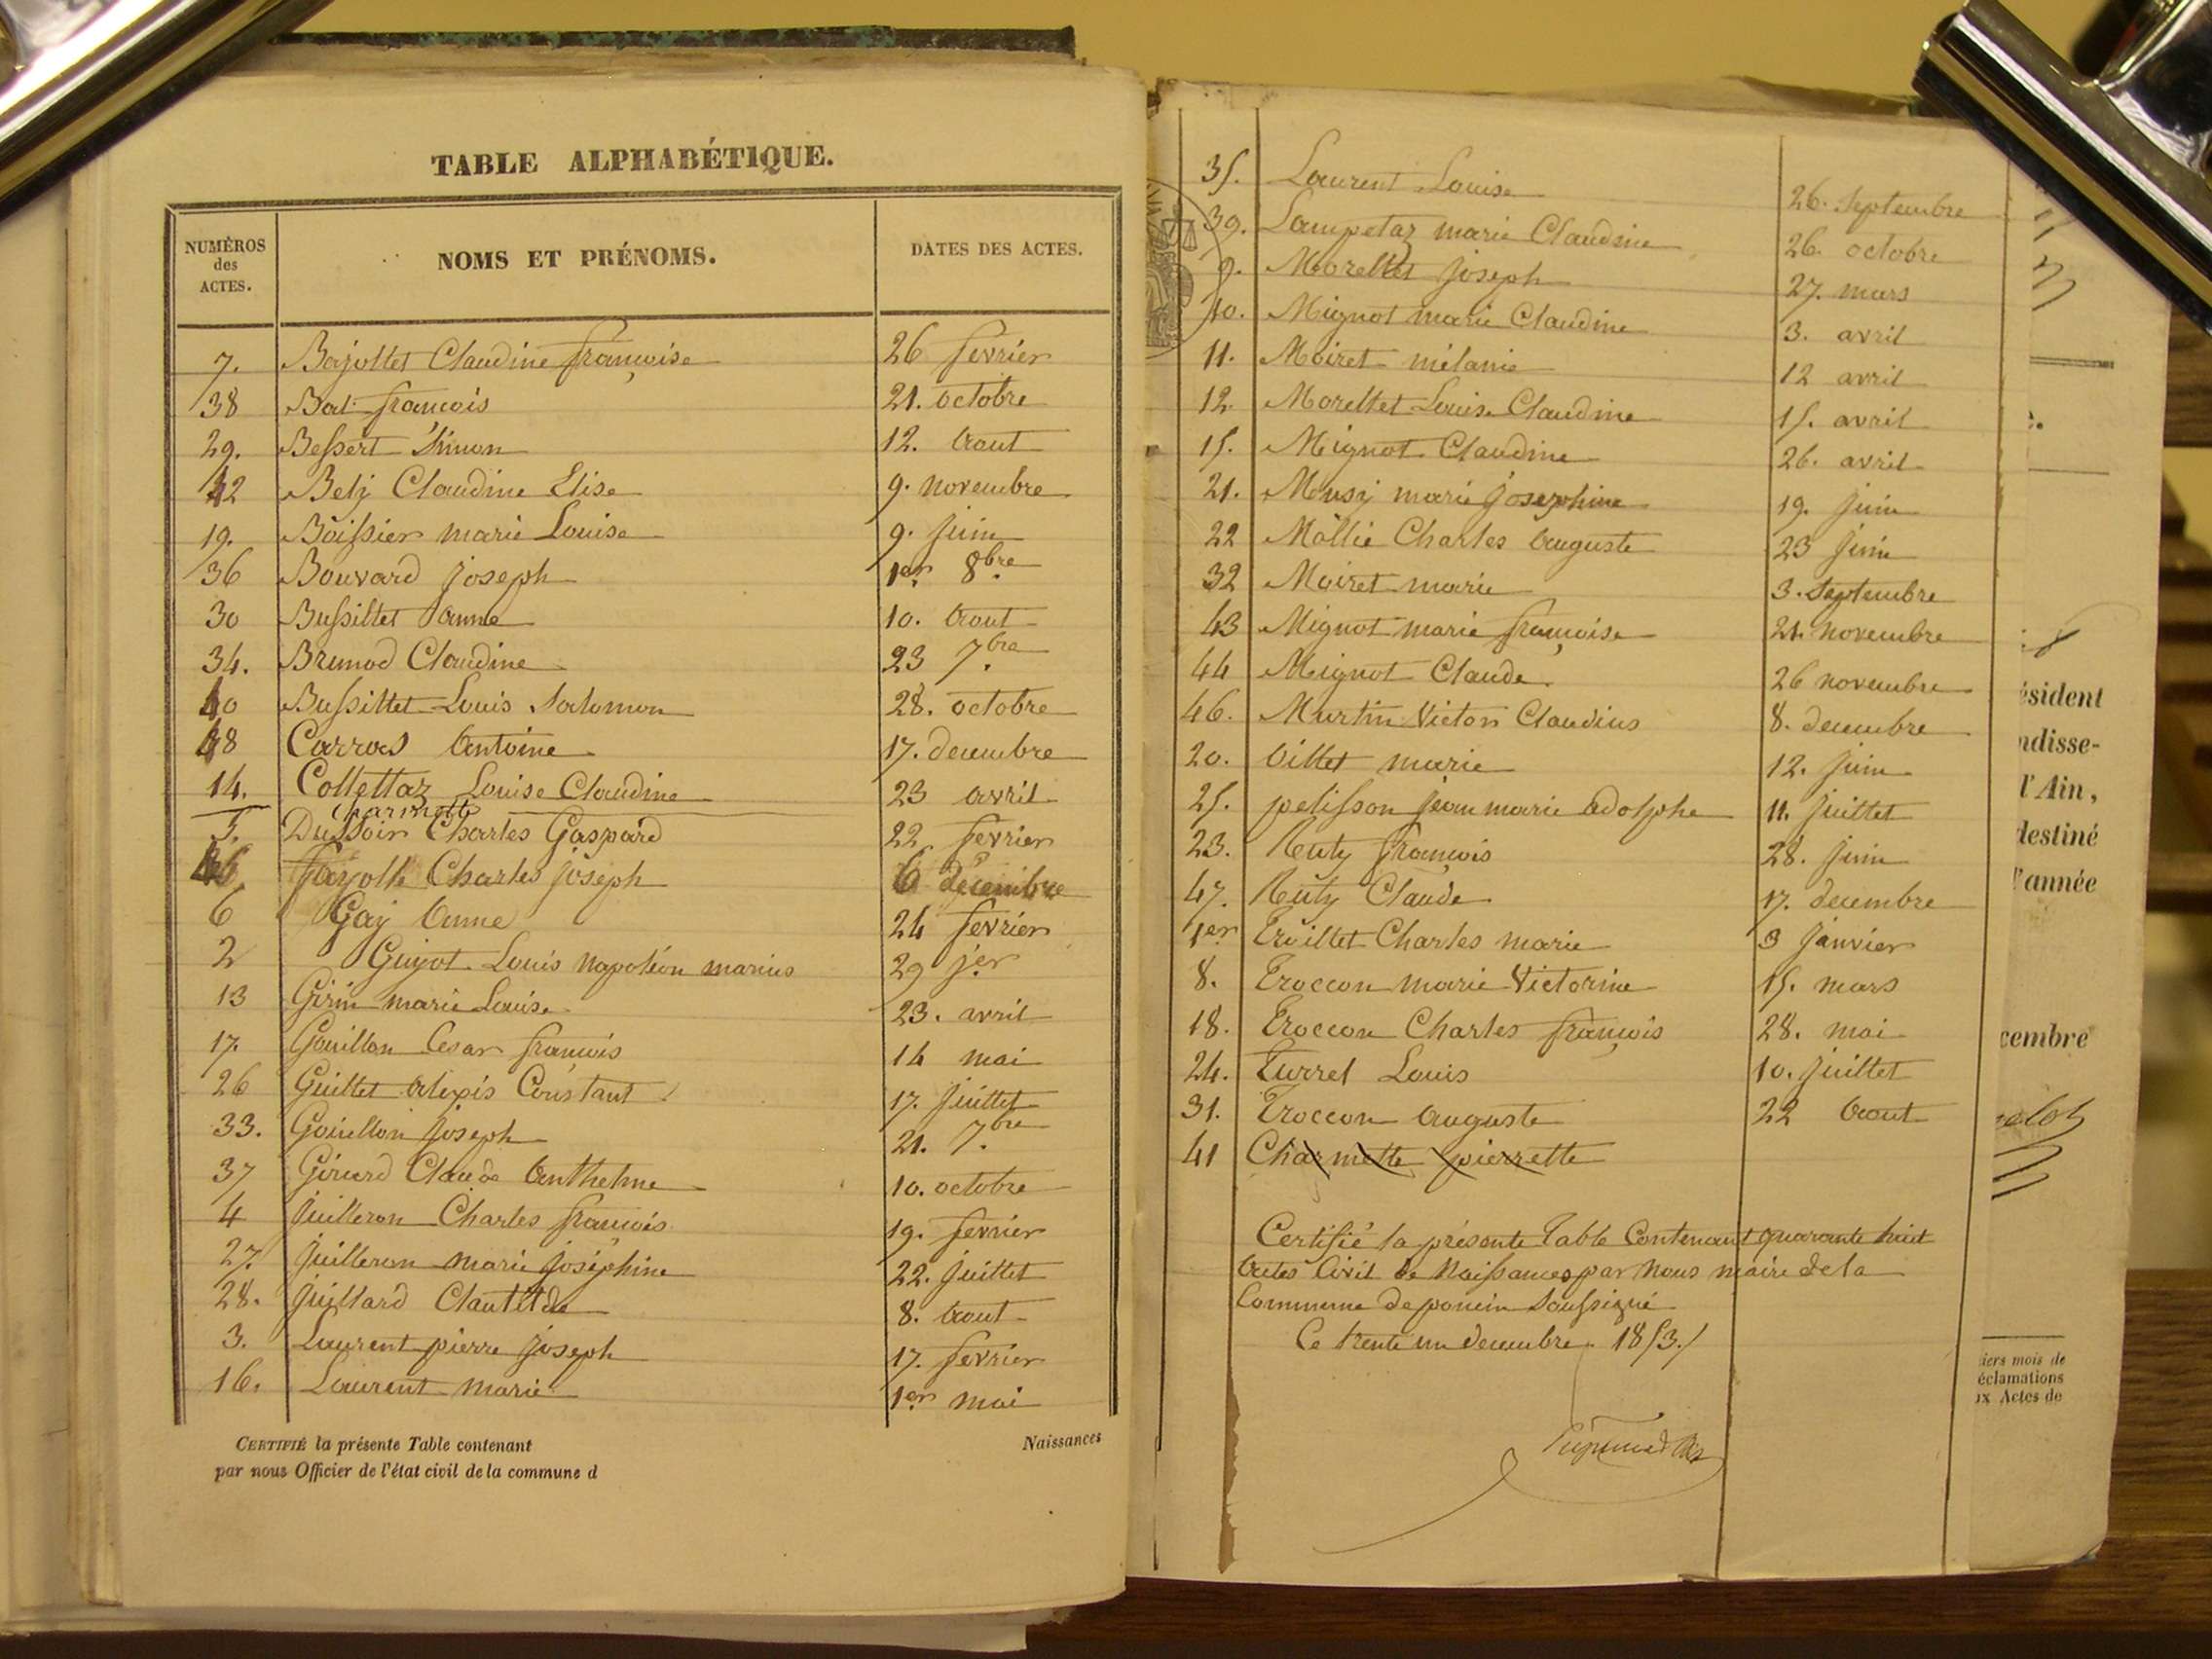 TABLE ALPHABÉTIQUE.
NUMÉROS des ACTES. NOMS ET PRÉNOMS. DATES DES ACTES.
7. Bajollet Claudine françoise 26 fevrier
38 Bal françois 21. octobre
29. Bessert Simon 12. Aout
42 Bely Claudine Elise 9. novembre
19. Boissier marie Louise 9. juin
36 Bouvard joseph 1er 8bre
30 Bussillet Anne 10. Aout
34. Brunod Claudine 23 7bre
40 Bussillet Louis Salomon 28. octobre
48 Carras Antoine 17. decembre
14. Collettaz Louise Claudine 23 avril
Charmette
5. Dussoir Charles Gaspard 22 fevrier
fayolle Charles joseph 6 décembre
6 Gay Anne 24 fevrier
2 Guyot Louis napoléon marius 29 jer
13 Girin marie Louise 23. avril
17. Gouillon Cesar françois 14 mai
26 Guillet Alexis Constant 17. juillet
33. Gouillon joseph 21. 7bre
37 Girard Claude Anthelme 10. octobre
4 juilleron Charles françois 19. fevrier
27. juilleron marie joséphine 22. juillet
28. juillard 8. Aout
3. Laurent pierre joseph 17. fevrier
16. Laurent marie 1er mai
CERTIFIÉ la présente Table contenant Naissances
par nous Officier de l'état civil de la commune d
35. Laurent Louise 26. Septembre
39. Lampetaz marie Claudine 26. octobre
9. Morellet joseph 27. mars
10. Mignot marie Claudine 3. avril
11. Moiret mélanie 12 avril
12. Morellet Louise Claudine 15. avril
15. Mignot Claudine 26. avril
21. Musy marie josephine 19. juin
22 Mollie Charles Auguste 23 juin
32 Moiret marie 3. Septembre
43 Mignot marie françoise 21. novembre
44 Mignot Claude 26 novembre
46. Martin Victor Claudius 8. decembre
20. Oillet marie 12. juin
25. pelisson jean marie Adolphe 11. juillet
23. Ruty françois 28. juin
47. Ruty Claude 17. decembre
1er Troillet Charles marie 3 janvier
8. Troccon marie Victorine 15. mars
18. Troccon Charles françois 28. mai
24. Turrel Louis 10. juillet
31. Troccon Auguste 22 Aout
41 Charmette pierrette
Certifié la présente Table Contenant quarante huit
Actes Civil de Naissances par Nous maire de la
Commune de poncin Soussigné
Ce trente un decembre 1853./
ésident
ndisse-
l'Ain,
destiné
l'année
cembre
iers mois de
éclamations
ux Actes de